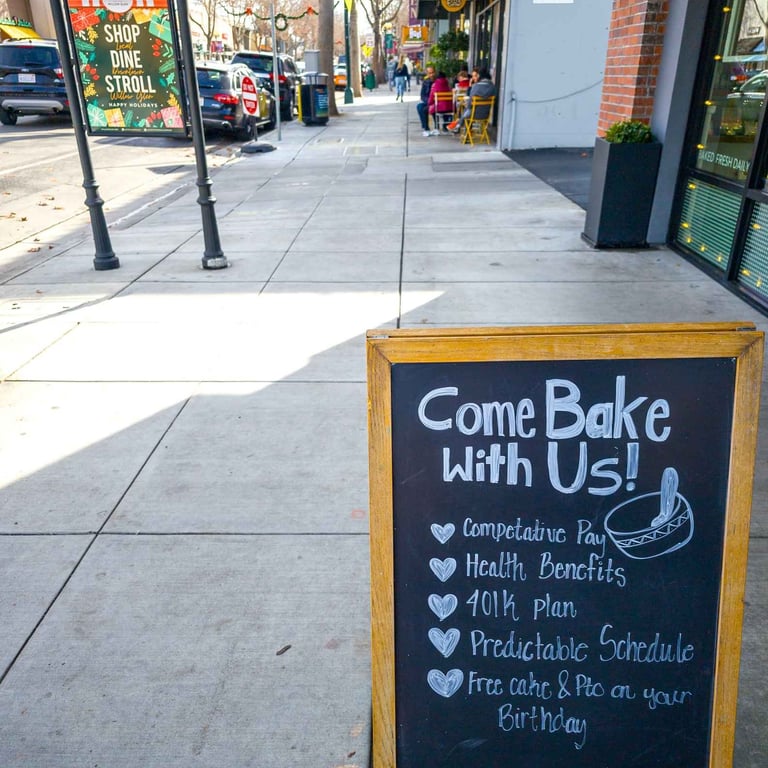 SHOP
Local
DINE
Downtown
STROLL
Willow Glen
HAPPY HOLIDAYS
BAKED FRESH DAILY
Come Bake
With Us!
Competative Pay
Health Benefits
401K plan
Predictable Schedule
Free cake & Pto on your
Birthday